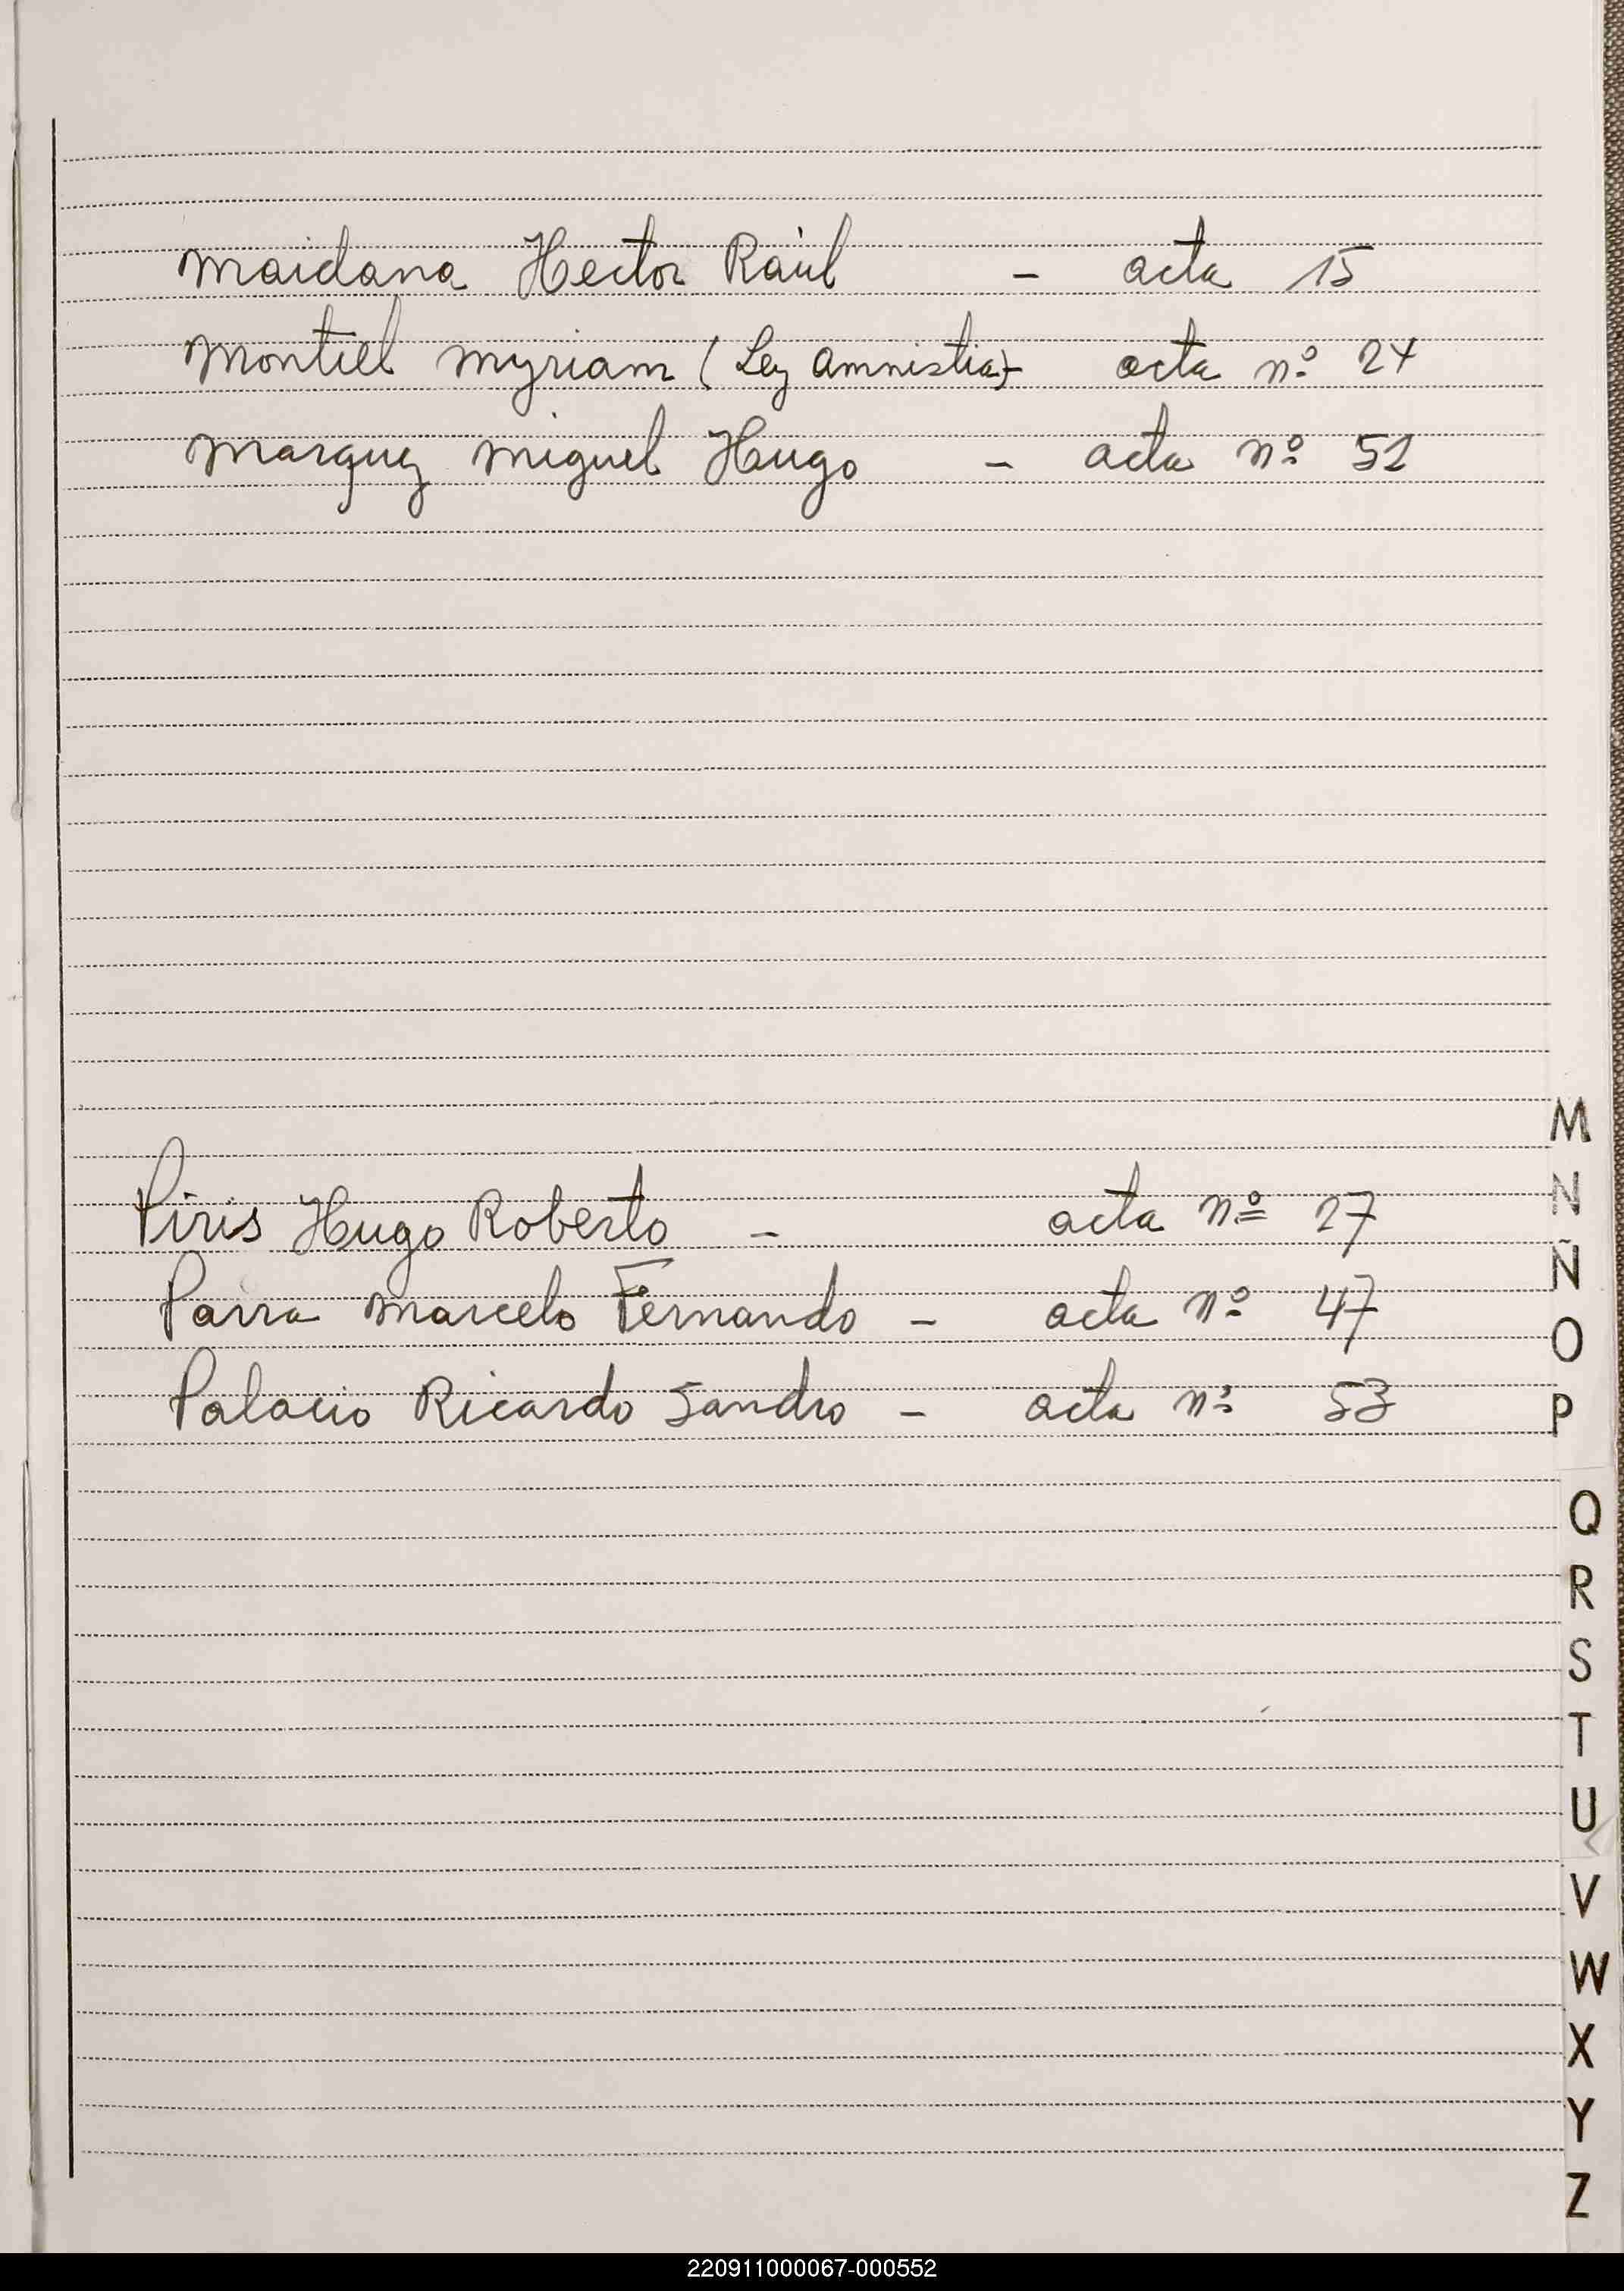 Maidana Hector Raúl - acta 15
Montiel Myriam (Ley Amnistia)- acta nº 24
Marquez Miguel Hugo - acta nº 51
Piris Hugo Roberto - acta nº 27
Parra Marcelo Fernando - acta nº 47
Palacio Ricardo Sandro - acta nº 53
M
N
Ñ
O
P
Q
R
S
T
U
V
W
X
Y
Z
220911000067-000552